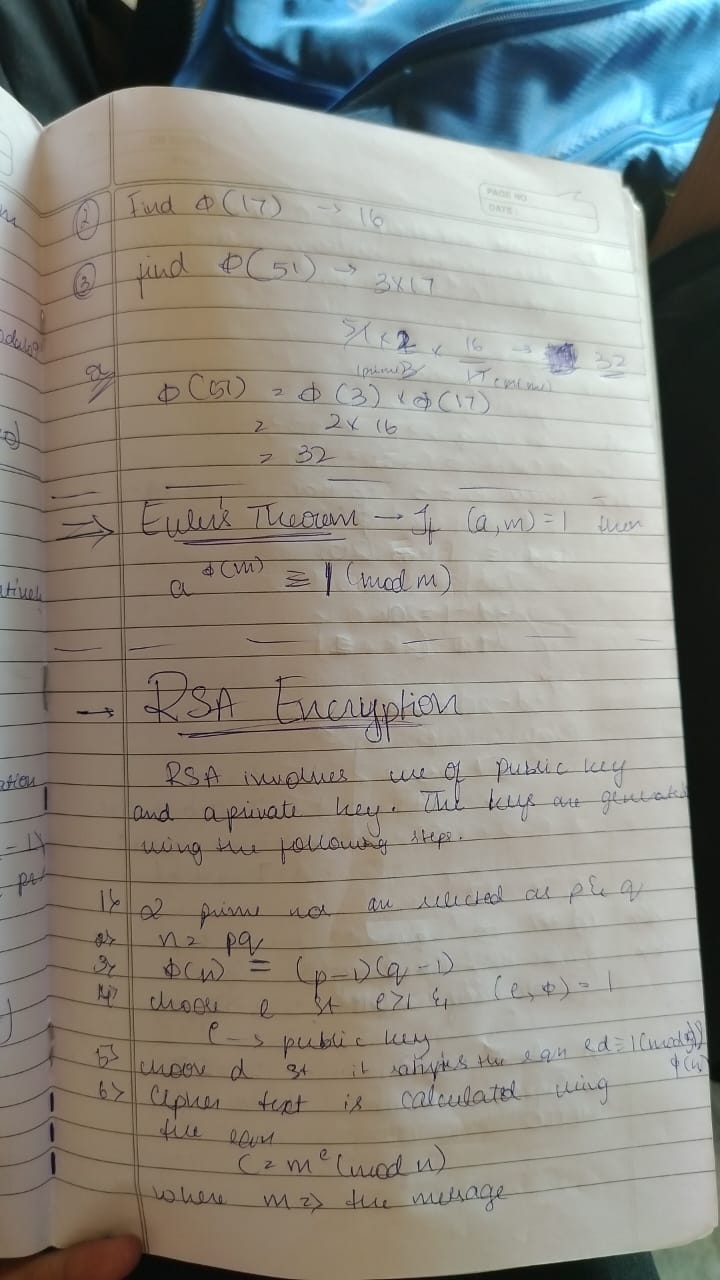 PAGE NO
DATE
② Find Φ(17) → 16
③ find Φ(51) → 3x17
51 x 2 x 16 → 32
(prime) 3 17 (prime)
Φ(51) = Φ(3) x Φ(17)
= 2x 16
= 32
⇒ Euler's Theorem → If (a,m)=1 then
a^Φ(m) ≡ 1 (mod m)
→ RSA Encryption
RSA involves use of public key
and a private key. The keys are generated
using the following steps.
1) 2 prime nos are selected as p & q
2) n = pq
3) Φ(n) = (p-1)(q-1)
4) choose e st e>1 & (e, Φ) = 1
e → public key
5) choose d st it satisfies the eqn ed≡1(mod
Φ(n)
6) Cipher text is calculated using
the eqn
C = m^e (mod n)
where m => the message